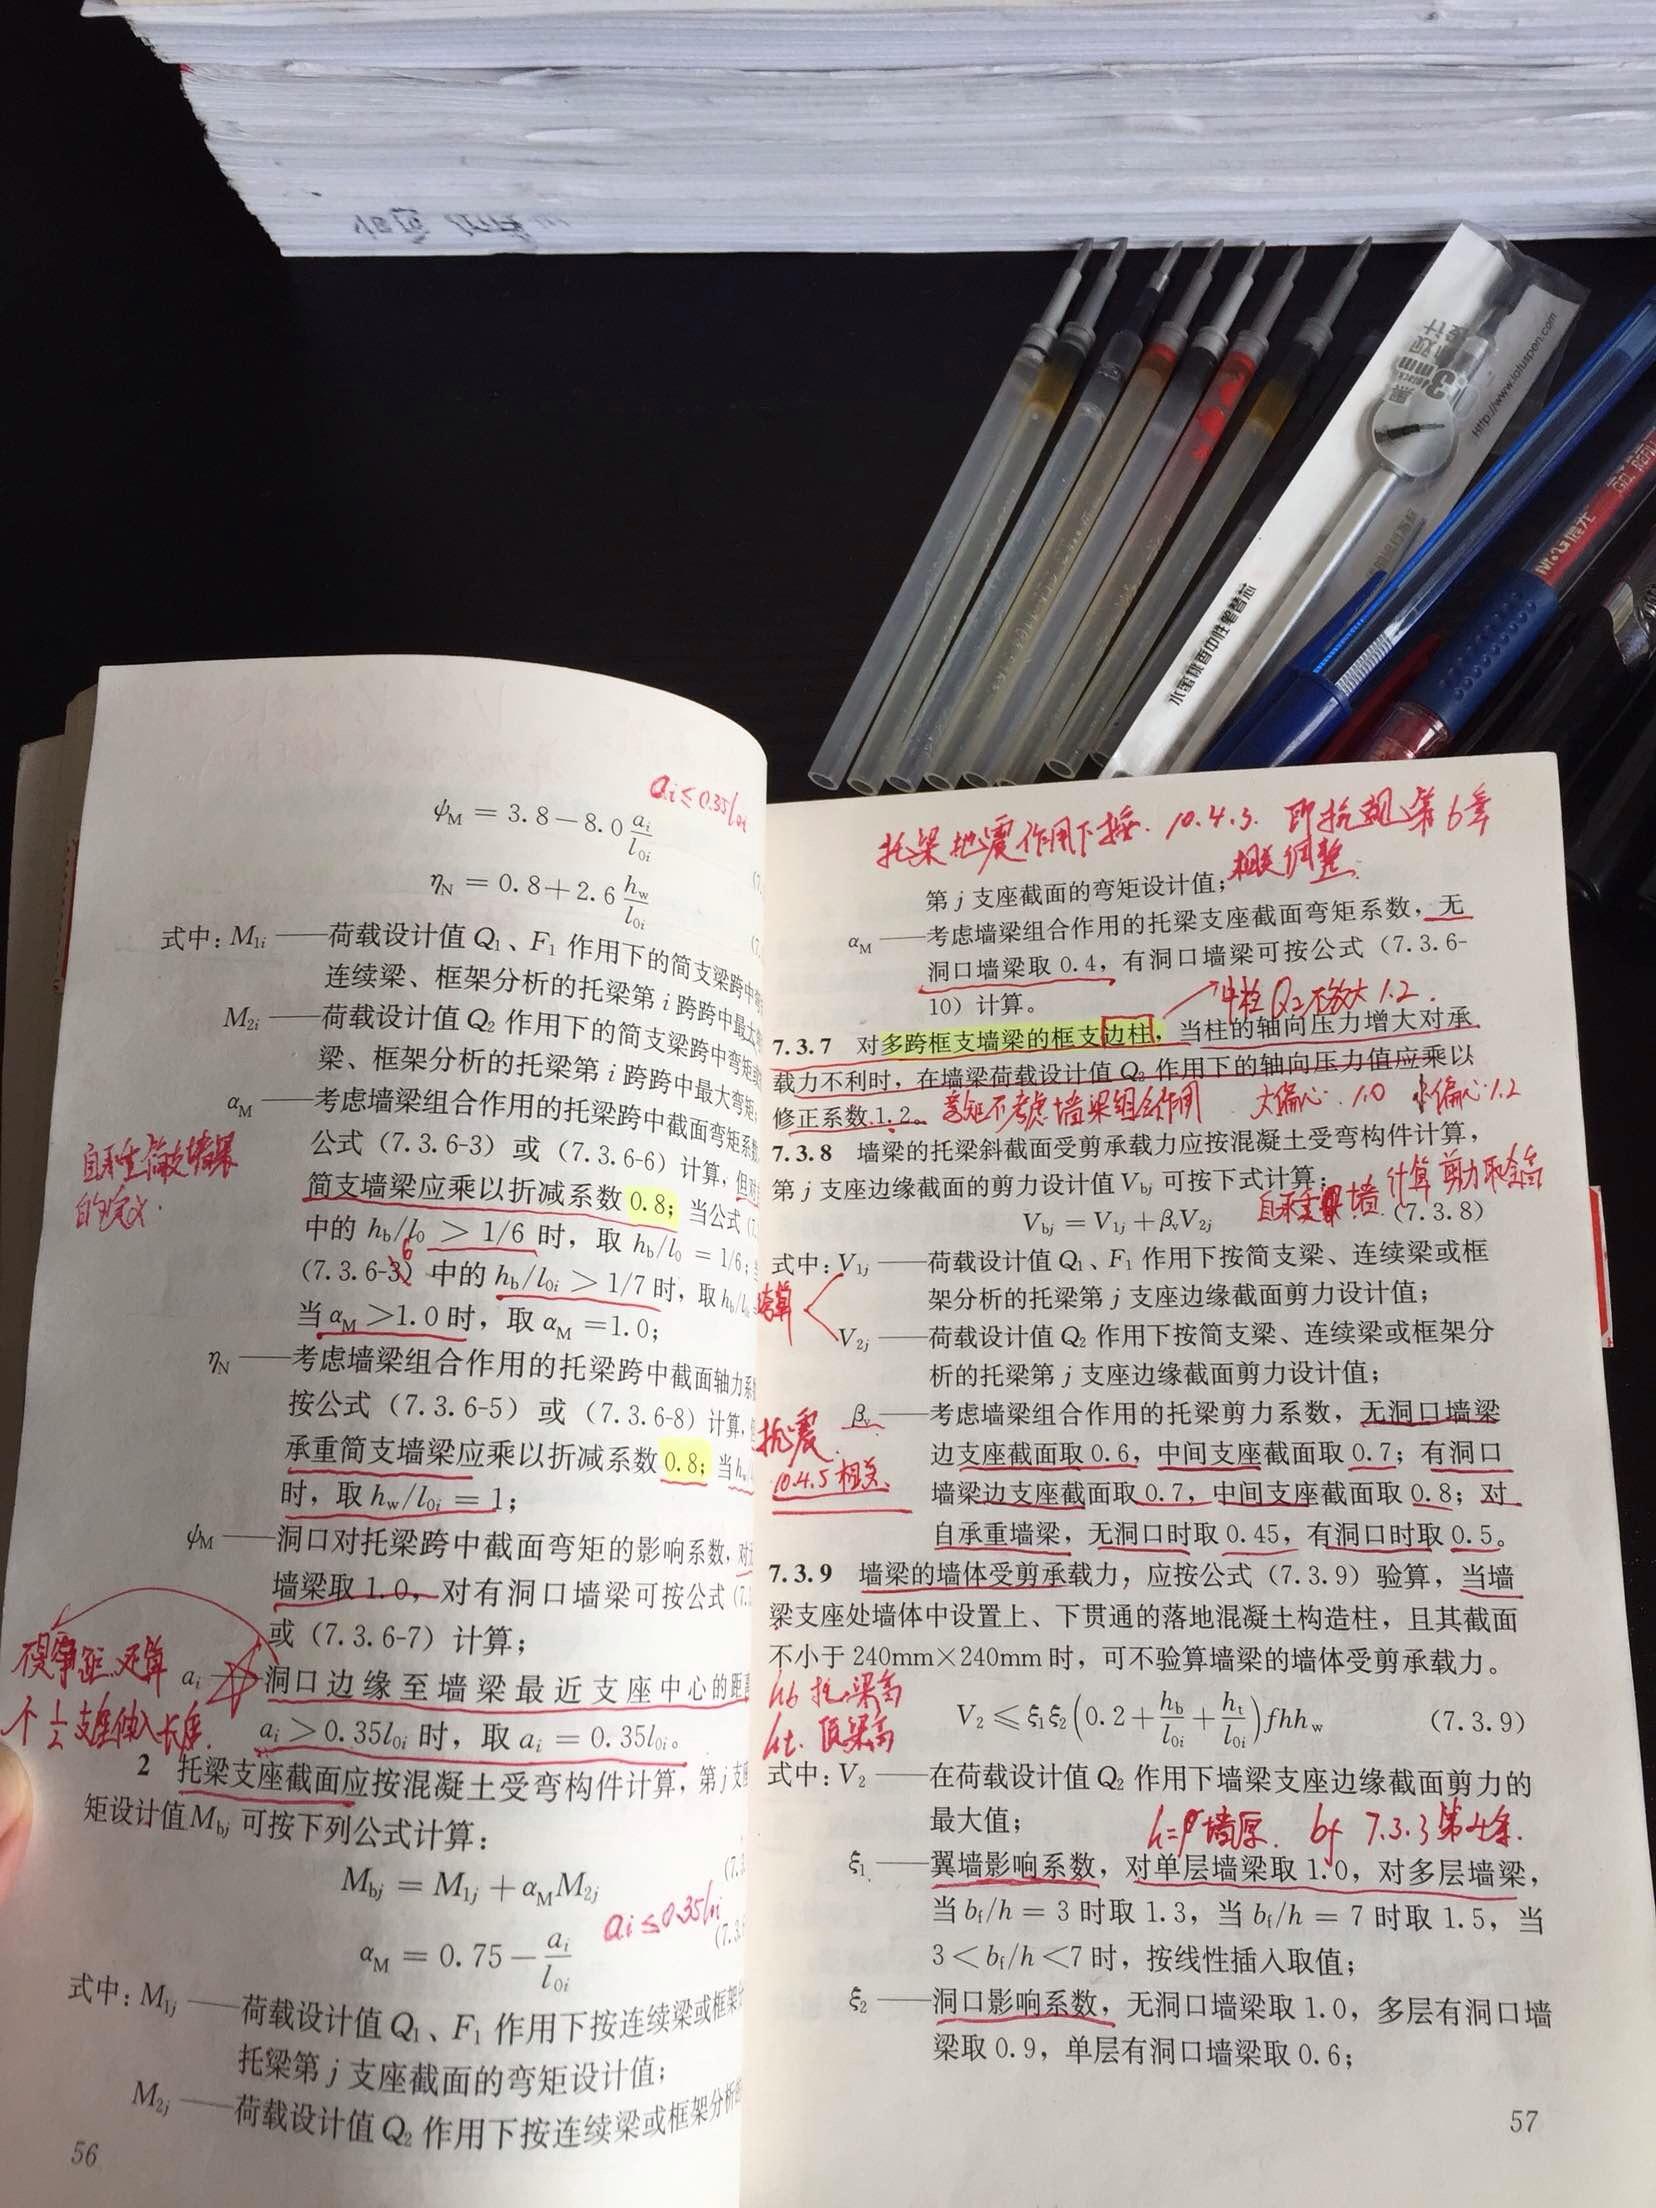 水蜜桃香中性笔替芯
Http://www.lotuspen.com
M&G晨光
ai≤0.35l0i
ψM = 3.8-8.0 ai/l0i
ηN = 0.8+2.6 hw/l0i
式中: M1i ——荷载设计值 Q1、F1 作用下的简支梁跨中
连续梁、框架分析的托梁第 i 跨跨中最大
M2i ——荷载设计值 Q2 作用下的简支梁跨中弯矩
梁、框架分析的托梁第 i 跨跨中最大弯矩;
αM ——考虑墙梁组合作用的托梁跨中截面弯矩系数
公式 (7.3.6-3) 或 (7.3.6-6) 计算, 但对
自承重简支墙梁
的定义.
简支墙梁应乘以折减系数 0.8; 当公式 (7
中的 hb/l0 > 1/6 时, 取 hb/l0 = 1/6;
6
(7.3.6-3) 中的 hb/l0i > 1/7 时, 取 hb/l0
当 αM >1.0 时, 取 αM =1.0;
ηN ——考虑墙梁组合作用的托梁跨中截面轴力系
按公式 (7.3.6-5) 或 (7.3.6-8) 计算,
承重简支墙梁应乘以折减系数 0.8; 当 hw
时, 取 hw/l0i = 1;
ψM ——洞口对托梁跨中截面弯矩的影响系数, 对
墙梁取 1.0, 对有洞口墙梁可按公式 (7.
或 (7.3.6-7) 计算;
ai ——洞口边缘至墙梁最近支座中心的距
个 1/2 支座伸入长度.
ai > 0.35l0i 时, 取 ai = 0.35l0i。
2 托梁支座截面应按混凝土受弯构件计算, 第 j 支
矩设计值 Mbj 可按下列公式计算:
Mbj = M1j + αM M2j
ai≤0.35l0i
αM = 0.75 - ai/l0i
式中: M1j ——荷载设计值 Q1、F1 作用下按连续梁或框架
托梁第 j 支座截面的弯矩设计值;
M2j ——荷载设计值 Q2 作用下按连续梁或框架分析
56
托梁地震作用下按. 10.4.3. 即抗规第6章
相关调整.
第 j 支座截面的弯矩设计值;
αM ——考虑墙梁组合作用的托梁支座截面弯矩系数, 无
洞口墙梁取 0.4, 有洞口墙梁可按公式 (7.3.6-
10) 计算。
中柱 Q2不放大 1.2.
7.3.7 对多跨框支墙梁的框支边柱, 当柱的轴向压力增大对承
载力不利时, 在墙梁荷载设计值 Q2 作用下的轴向压力值应乘以
修正系数 1.2。
弯矩不考虑墙梁组合作用 大偏心: 1.0 小偏心: 1.2
7.3.8 墙梁的托梁斜截面受剪承载力应按混凝土受弯构件计算,
第 j 支座边缘截面的剪力设计值 Vbj 可按下式计算:
Vbj = V1j + βv V2j (7.3.8)
式中: V1j ——荷载设计值 Q1、F1 作用下按简支梁、连续梁或框
架分析的托梁第 j 支座边缘截面剪力设计值;
V2j ——荷载设计值 Q2 作用下按简支梁、连续梁或框架分
析的托梁第 j 支座边缘截面剪力设计值;
βv ——考虑墙梁组合作用的托梁剪力系数, 无洞口墙梁
抗震
10.4.5 相关.
边支座截面取 0.6, 中间支座截面取 0.7; 有洞口
墙梁边支座截面取 0.7, 中间支座截面取 0.8; 对
自承重墙梁, 无洞口时取 0.45, 有洞口时取 0.5。
7.3.9 墙梁的墙体受剪承载力, 应按公式 (7.3.9) 验算, 当墙
梁支座处墙体中设置上、下贯通的落地混凝土构造柱, 且其截面
不小于 240mm×240mm 时, 可不验算墙梁的墙体受剪承载力。
hb 托梁高
ht. 顶梁高
V2 ≤ ξ1ξ2 (0.2 + hb/l0i + ht/l0i) fhhw (7.3.9)
式中: V2 ——在荷载设计值 Q2 作用下墙梁支座边缘截面剪力的
最大值;
h=墙厚. bf 7.3.3第4条.
ξ1 ——翼墙影响系数, 对单层墙梁取 1.0, 对多层墙梁,
当 bf/h = 3 时取 1.3, 当 bf/h = 7 时取 1.5, 当
3 < bf/h < 7 时, 按线性插入取值;
ξ2 ——洞口影响系数, 无洞口墙梁取 1.0, 多层有洞口墙
梁取 0.9, 单层有洞口墙梁取 0.6;
57